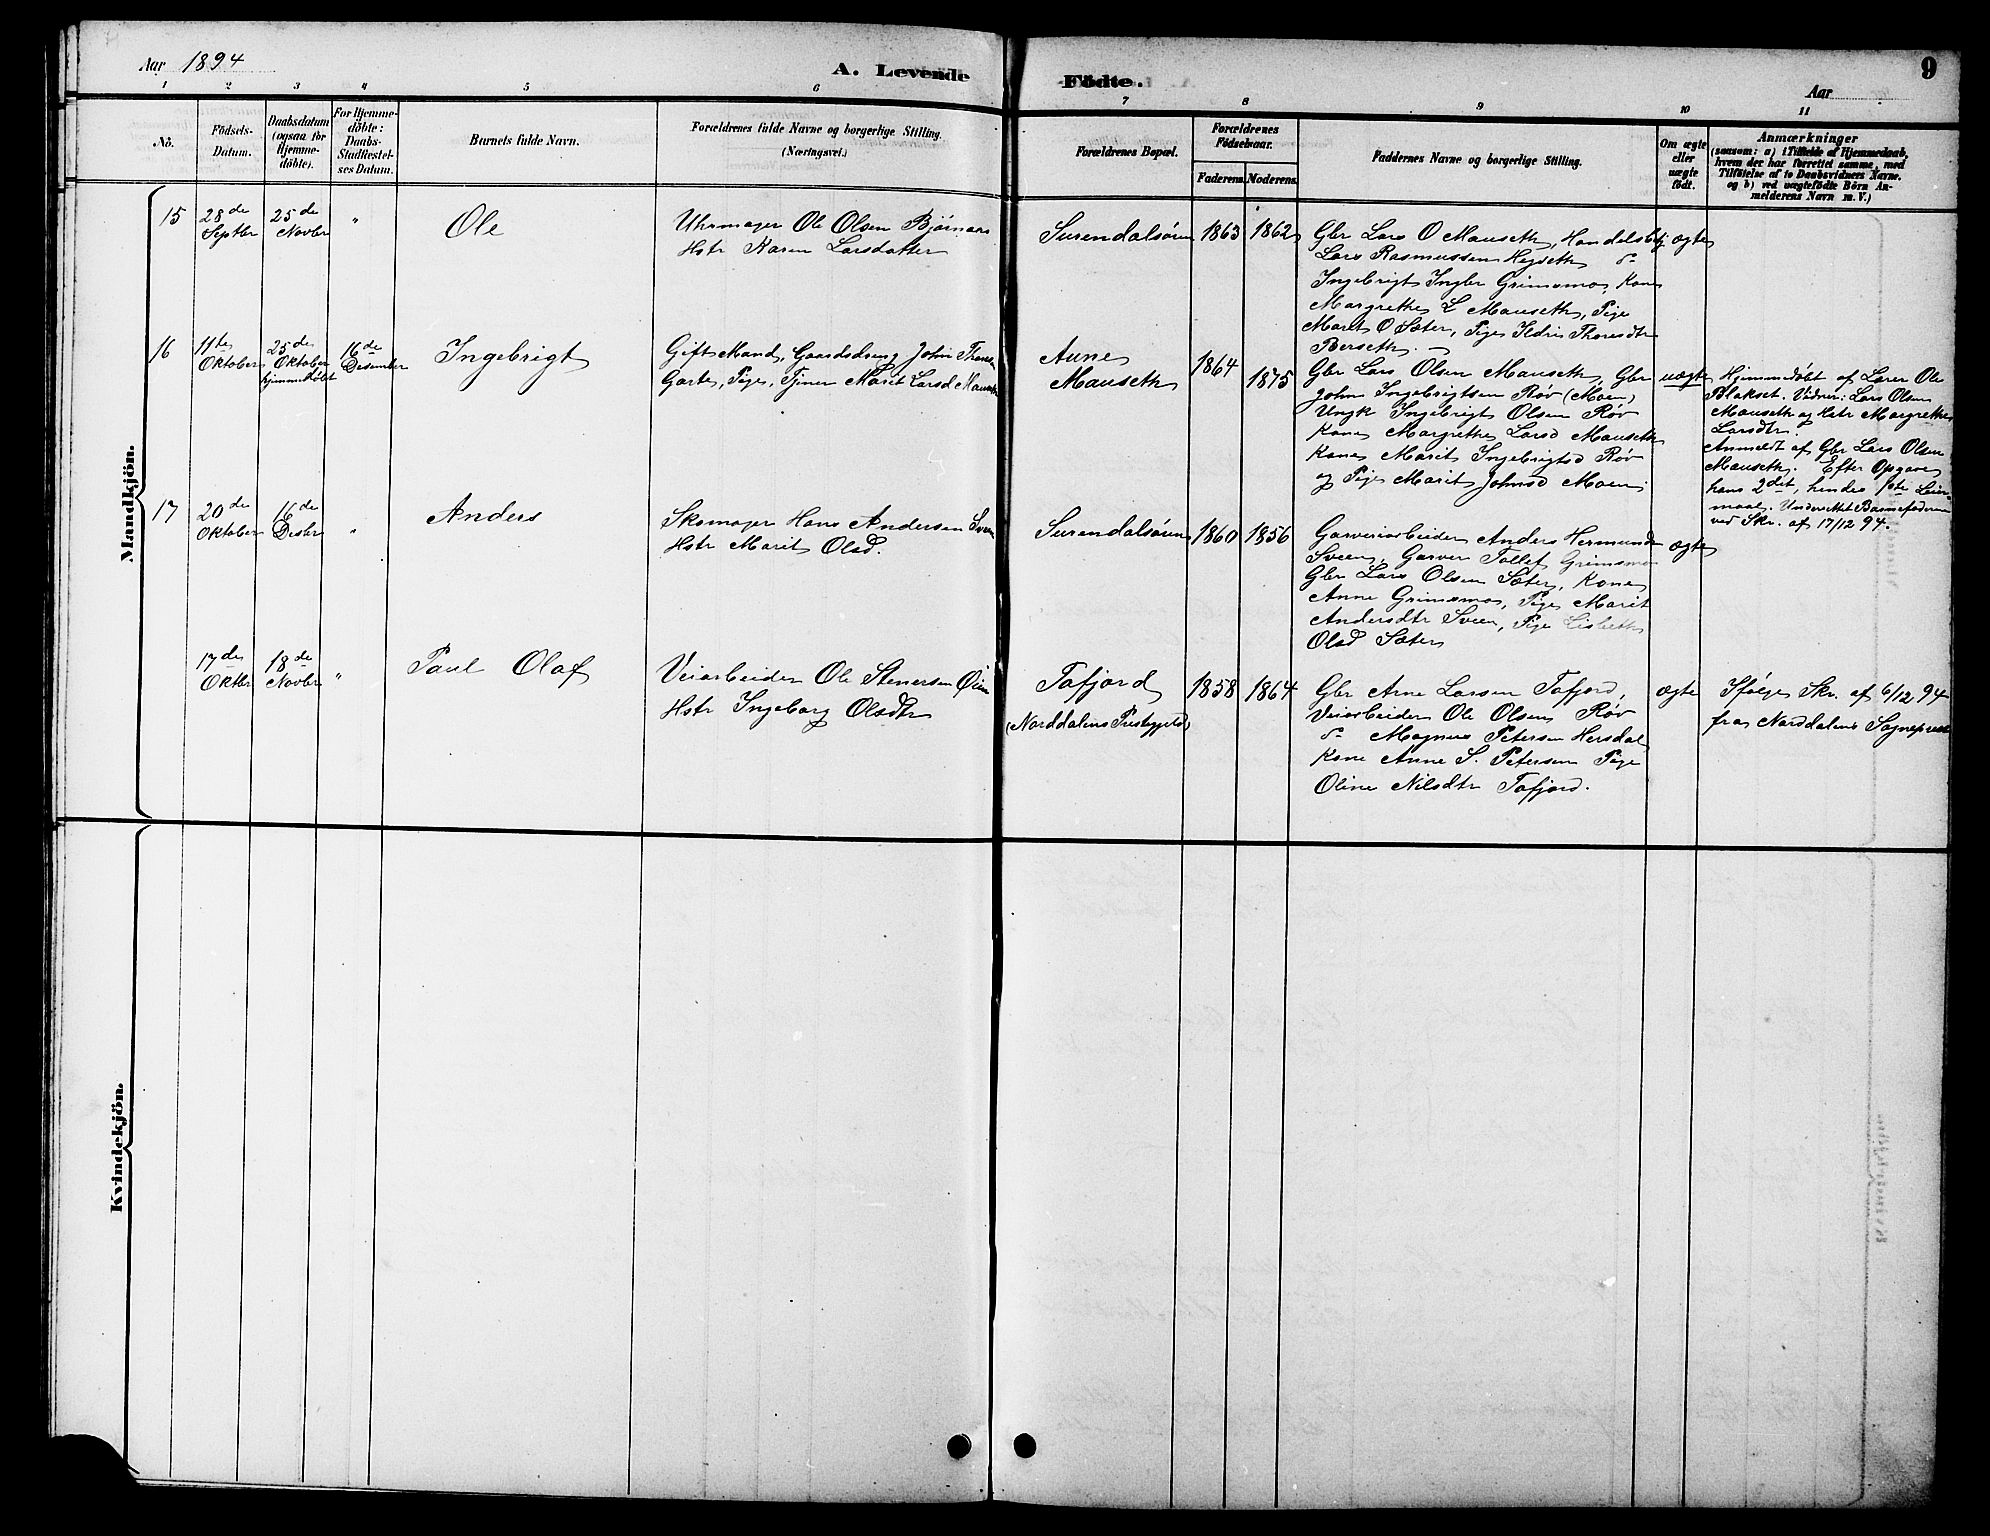 Aar 1894
A. Levende
Födte.
9
Aar
1 2 3 4 5 6 7 8 9 10 11
No.
Födsels-
Datum.
Daabsdatum
(ogsaa for
Hjemme-
döbte).
For Hjemme-
döbte:
Daabs-
Stadfæstel-
ses Datum.
Barnets fulde Navn.
Forældrenes fulde Navne og borgerlige Stilling.
(Næringsvei.)
Forældrenes Bopæl.
Forældrenes
Födselsaar.
Faderens.
Moderens.
Faddernes Navne og borgerlige Stilling.
Om ægte
eller
uægte
födt.
Anmærkninger
(saasom: a) i Tilfælde af Hjemmedaab,
hvem der har forrettet samme, med
Tilföielse af to Daabsvidners Navne,
og b) ved uægtefödte Börn An-
melderens Navn m. V.)
Mandkjön.
15
28de
Septbr
25de
Novbr
"
Ole
Uhrmager Ole Olsen Bjørnaas
Hstr Karen Larsdatter
Surendalsøren
1863
1862
Gbr Lars O Mauseth, Handelsbetj
Lars Rasmussen Hejseth
Ingebrigt Ingbr Grimsmo, Kone
Margrethe L Mauseth, Pige
Marit O Sæter, Pige Ildri Thoresdtr
Berseth.
ægte
16
11te
Oktober
25de
Oktober
hjemmedøbt
16de
Desember
Ingebrigt
Gift Mand, Gaardsdreng John
Garte, Pige, Tjener Marit Larsd Mauseth
Aune
Mauseth
1864
1875
Gbr Lars Olsen Mauseth, Gbr
John Ingebrigtsen Røv (Moen)
Ungk Ingebrigt Olsen Røv
Kone Margrethe Larsd Mauseth
Kone Marit Ingebrigtsd Røv
og Pige Marit Johnsd Moen.
uægte
Hjemmedøbt af Lærer Ole
Blakset. Vidner: Lars Olsen
Mauseth og Hstr Margrethe
Larsdtr.
Anmeldt af Gbr Lars Olsen
Mauseth. Efter Opgave
hans 2det, hendes 1ste Leier-
maal. Underrettet Barnefaderen
ved Skr. af 17/12 94.
17
20de
Oktober
16de
Desbr
"
Anders
Skomager Hans Andersen Sveen
Hstr Marit Olsd.
Surendalsøren
1860
1856
Garveriarbeider Anders Hermunds
Sveen, Garver Tollef Grimsmo
Gbr Lars Olsen Sæter, Kone
Anne Grimsmo, Pige Marit
Andersdtr Sveen, Pige Lisbeth
Olsd Sæter
ægte
17de
Oktbr
18de
Novbr
"
Paul Olaf
Veiarbeider Ole Stenersen Øien
Hstr Ingeborg Olsdtr
Tafjord
(Norddalens Prestegjeld)
1858
1864
Gbr Arne Larsen Tafjord,
Veiarbeider Ole Olsen Røv
Magnus Petersen Hersdal
Kone Anne S. Petersen Pige
Oline Nilsdtr Tafjord.
ægte
Ifølge Skr. af 6/12 94
fra Norddalens Sognepræst
Kvindekjön.